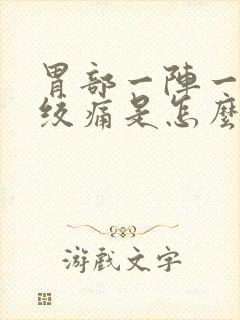 胃部一陣一
绞痛是怎麼
游戲文字